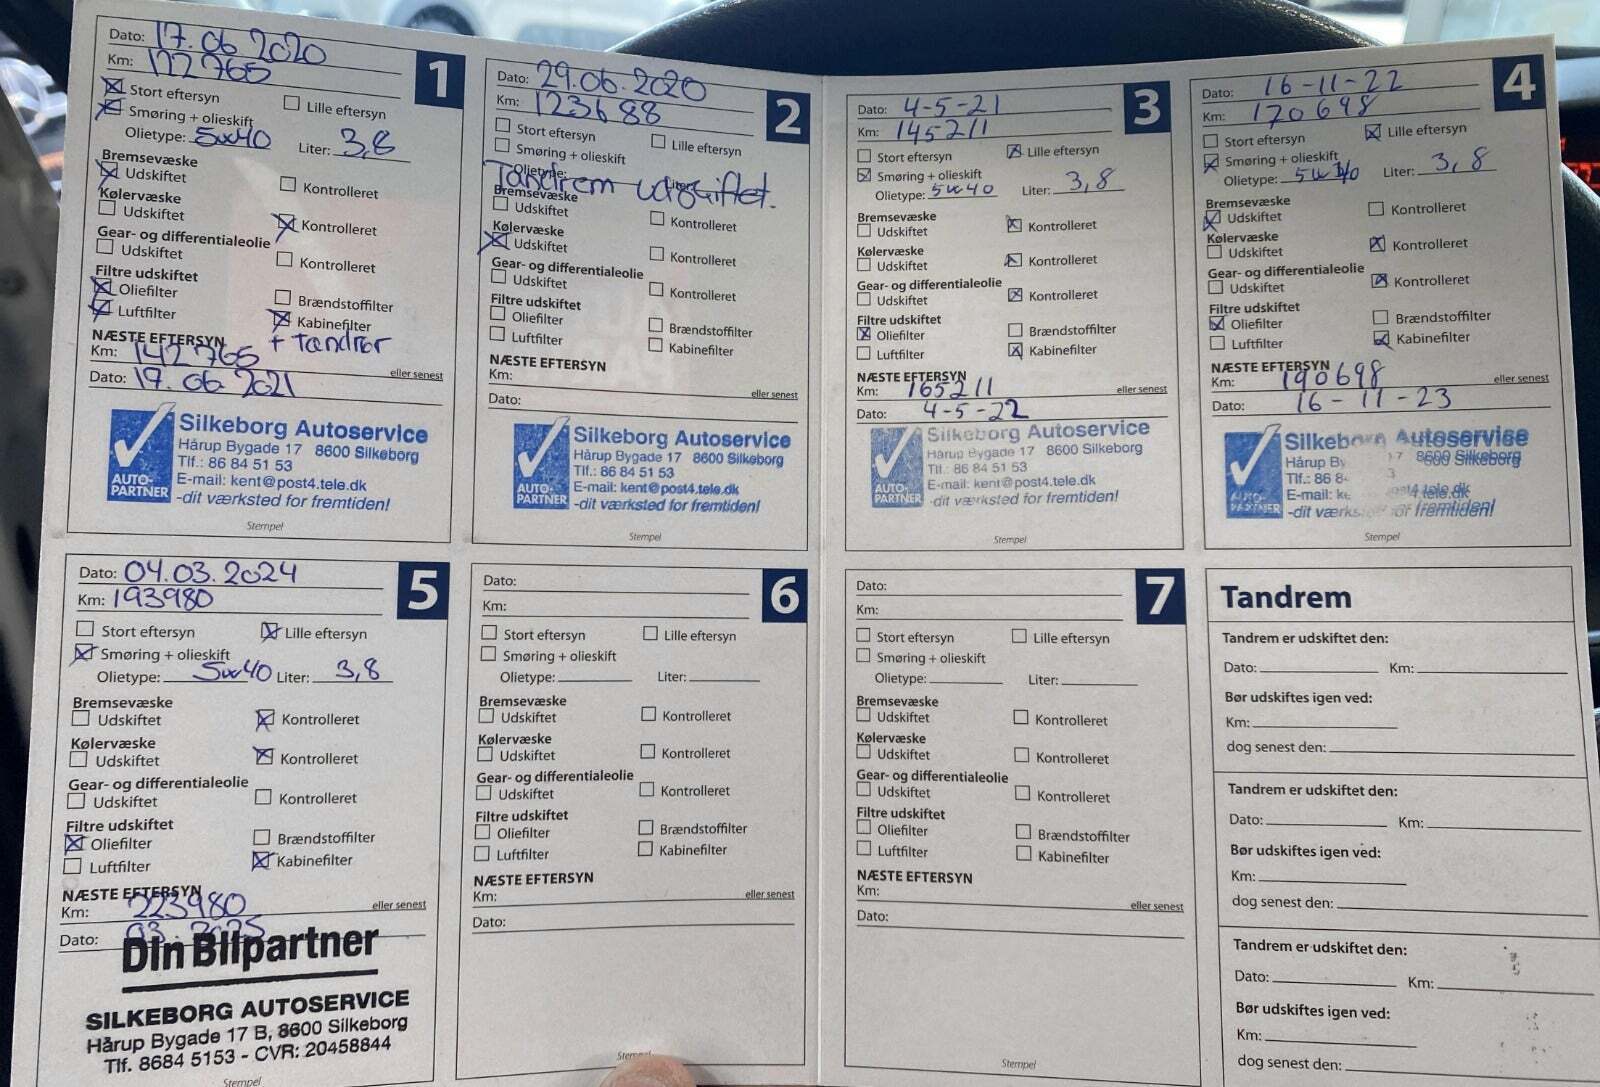 Dato: 17.06 2020
1
Km: 122765
Stort eftersyn
Lille eftersyn
Smøring + olieskift
Olietype: 5w40 Liter: 3,8
Bremsevæske
Udskiftet
Kontrolleret
Kølervæske
Udskiftet
Kontrolleret
Gear- og differentialeolie
Udskiftet
Kontrolleret
Filtre udskiftet
Oliefilter
Brændstoffilter
Luftfilter
Kabinefilter
NÆSTE EFTERSYN + tændrør
Km: 142765
eller senest
Dato: 17.06 2021
AUTO-PARTNER
Silkeborg Autoservice
Hårup Bygade 17 8600 Silkeborg
Tlf.: 86 84 51 53
E-mail: kent@post4.tele.dk
-dit værksted for fremtiden!
Stempel
Dato: 29.06.2020
2
Km: 123688
Stort eftersyn
Lille eftersyn
Smøring + olieskift
Olietype: Liter:
Tandrem udskiftet.
Bremsevæske
Udskiftet
Kontrolleret
Kølervæske
Udskiftet
Kontrolleret
Gear- og differentialeolie
Udskiftet
Kontrolleret
Filtre udskiftet
Oliefilter
Brændstoffilter
Luftfilter
Kabinefilter
NÆSTE EFTERSYN
Km:
eller senest
Dato:
AUTO-PARTNER
Silkeborg Autoservice
Hårup Bygade 17 8600 Silkeborg
Tlf.: 86 84 51 53
E-mail: kent@post4.tele.dk
-dit værksted for fremtiden!
Stempel
Dato: 4-5-21
3
Km: 145211
Stort eftersyn
Lille eftersyn
Smøring + olieskift
Olietype: 5w40 Liter: 3,8
Bremsevæske
Udskiftet
Kontrolleret
Kølervæske
Udskiftet
Kontrolleret
Gear- og differentialeolie
Udskiftet
Kontrolleret
Filtre udskiftet
Oliefilter
Brændstoffilter
Luftfilter
Kabinefilter
NÆSTE EFTERSYN
Km: 165211
eller senest
Dato: 4-5-22
AUTO-PARTNER
Silkeborg Autoservice
Hårup Bygade 17 8600 Silkeborg
Tlf.: 86 84 51 53
E-mail: kent@post4.tele.dk
-dit værksted for fremtiden!
Stempel
Dato: 16-11-22
4
Km: 170698
Stort eftersyn
Lille eftersyn
Smøring + olieskift
Olietype: Liter: 3,8
Bremsevæske
Udskiftet
Kontrolleret
Kølervæske
Udskiftet
Kontrolleret
Gear- og differentialeolie
Udskiftet
Kontrolleret
Filtre udskiftet
Oliefilter
Brændstoffilter
Luftfilter
Kabinefilter
NÆSTE EFTERSYN
Km: 190698
eller senest
Dato: 16-11-23
AUTO-PARTNER
Silkeborg Autoservice
Hårup 8600 Silkeborg
Tlf.: 86
E-mail:
for fremtiden!
Stempel
Dato: 04.03.2024
5
Km: 193980
Stort eftersyn
Lille eftersyn
Smøring + olieskift
Olietype: 5w40 Liter: 3,8
Bremsevæske
Udskiftet
Kontrolleret
Kølervæske
Udskiftet
Kontrolleret
Gear- og differentialeolie
Udskiftet
Kontrolleret
Filtre udskiftet
Oliefilter
Brændstoffilter
Luftfilter
Kabinefilter
NÆSTE EFTERSYN
Km: 223980
eller senest
Dato: 03.2025
Din Bilpartner
SILKEBORG AUTOSERVICE
Hårup Bygade 17 B, 8600 Silkeborg
Tlf. 8684 5153 - CVR: 20458844
Stempel
Dato:
6
Km:
Stort eftersyn
Lille eftersyn
Smøring + olieskift
Olietype: Liter:
Bremsevæske
Udskiftet
Kontrolleret
Kølervæske
Udskiftet
Kontrolleret
Gear- og differentialeolie
Udskiftet
Kontrolleret
Filtre udskiftet
Oliefilter
Brændstoffilter
Luftfilter
Kabinefilter
NÆSTE EFTERSYN
Km:
eller senest
Dato:
Stempel
Dato:
7
Km:
Stort eftersyn
Lille eftersyn
Smøring + olieskift
Olietype: Liter:
Bremsevæske
Udskiftet
Kontrolleret
Kølervæske
Udskiftet
Kontrolleret
Gear- og differentialeolie
Udskiftet
Kontrolleret
Filtre udskiftet
Oliefilter
Brændstoffilter
Luftfilter
Kabinefilter
NÆSTE EFTERSYN
Km:
eller senest
Dato:
Stempel
Tandrem
Tandrem er udskiftet den:
Dato: Km:
Bør udskiftes igen ved:
Km:
dog senest den:
Tandrem er udskiftet den:
Dato: Km:
Bør udskiftes igen ved:
Km:
dog senest den:
Tandrem er udskiftet den:
Dato: Km:
Bør udskiftes igen ved:
Km:
dog senest den: